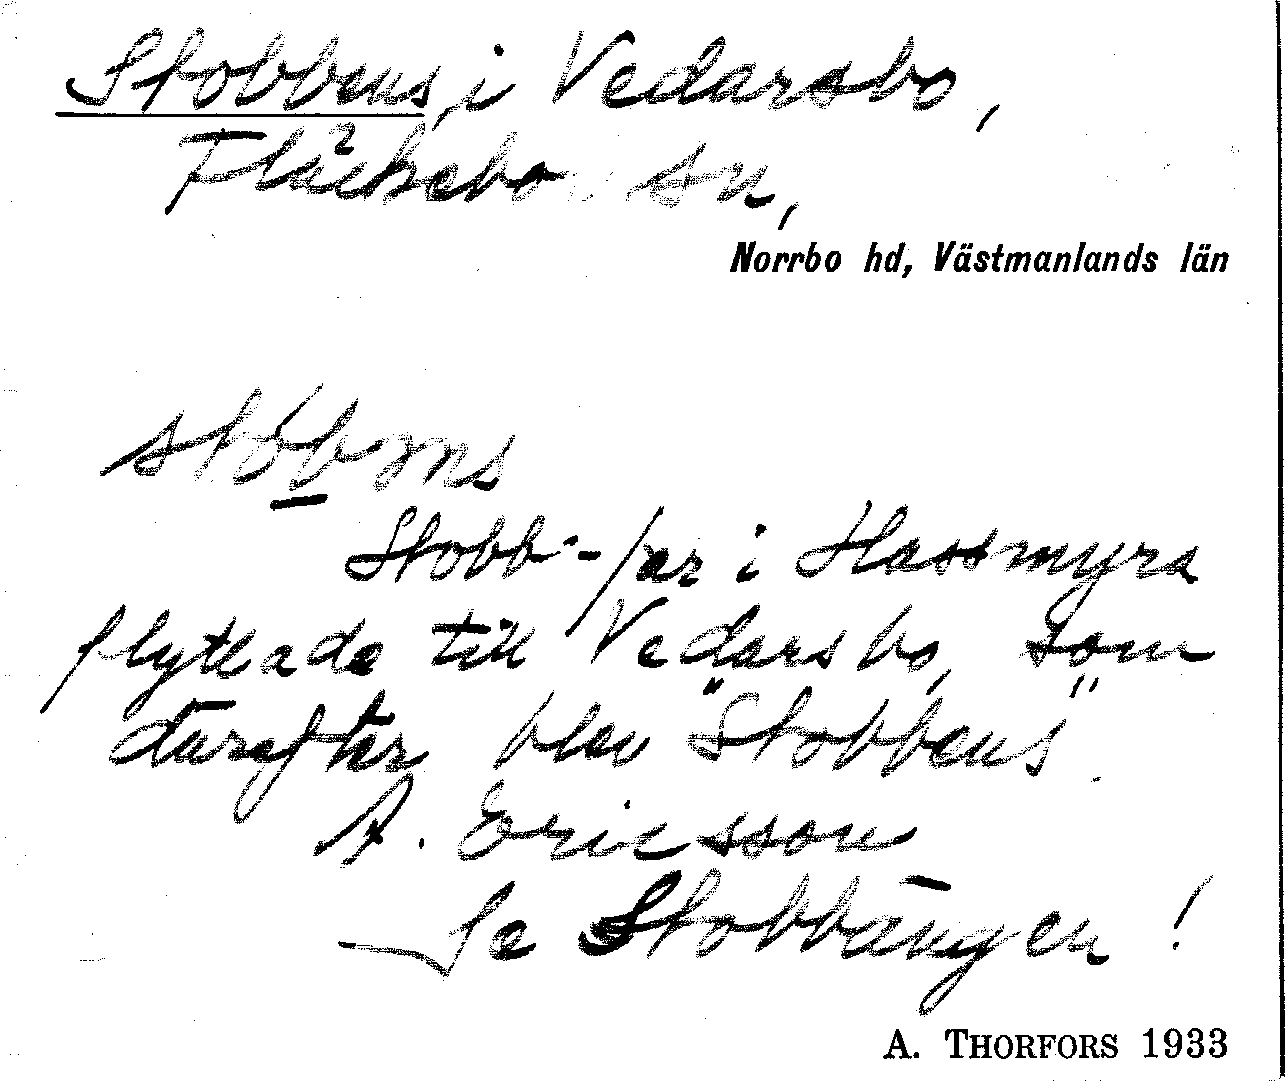 Stobbens, i Vedarsbo,
Fläckebo sn,
Norrbo hd, Västmanlands län
stóbǝns
Stobb-Per i Hassmyra
flyttade till Vedarsbo, som
därefter blev "Stobbens".
A. Ericsson
Se Stobbängen!
A. THORFORS 1933